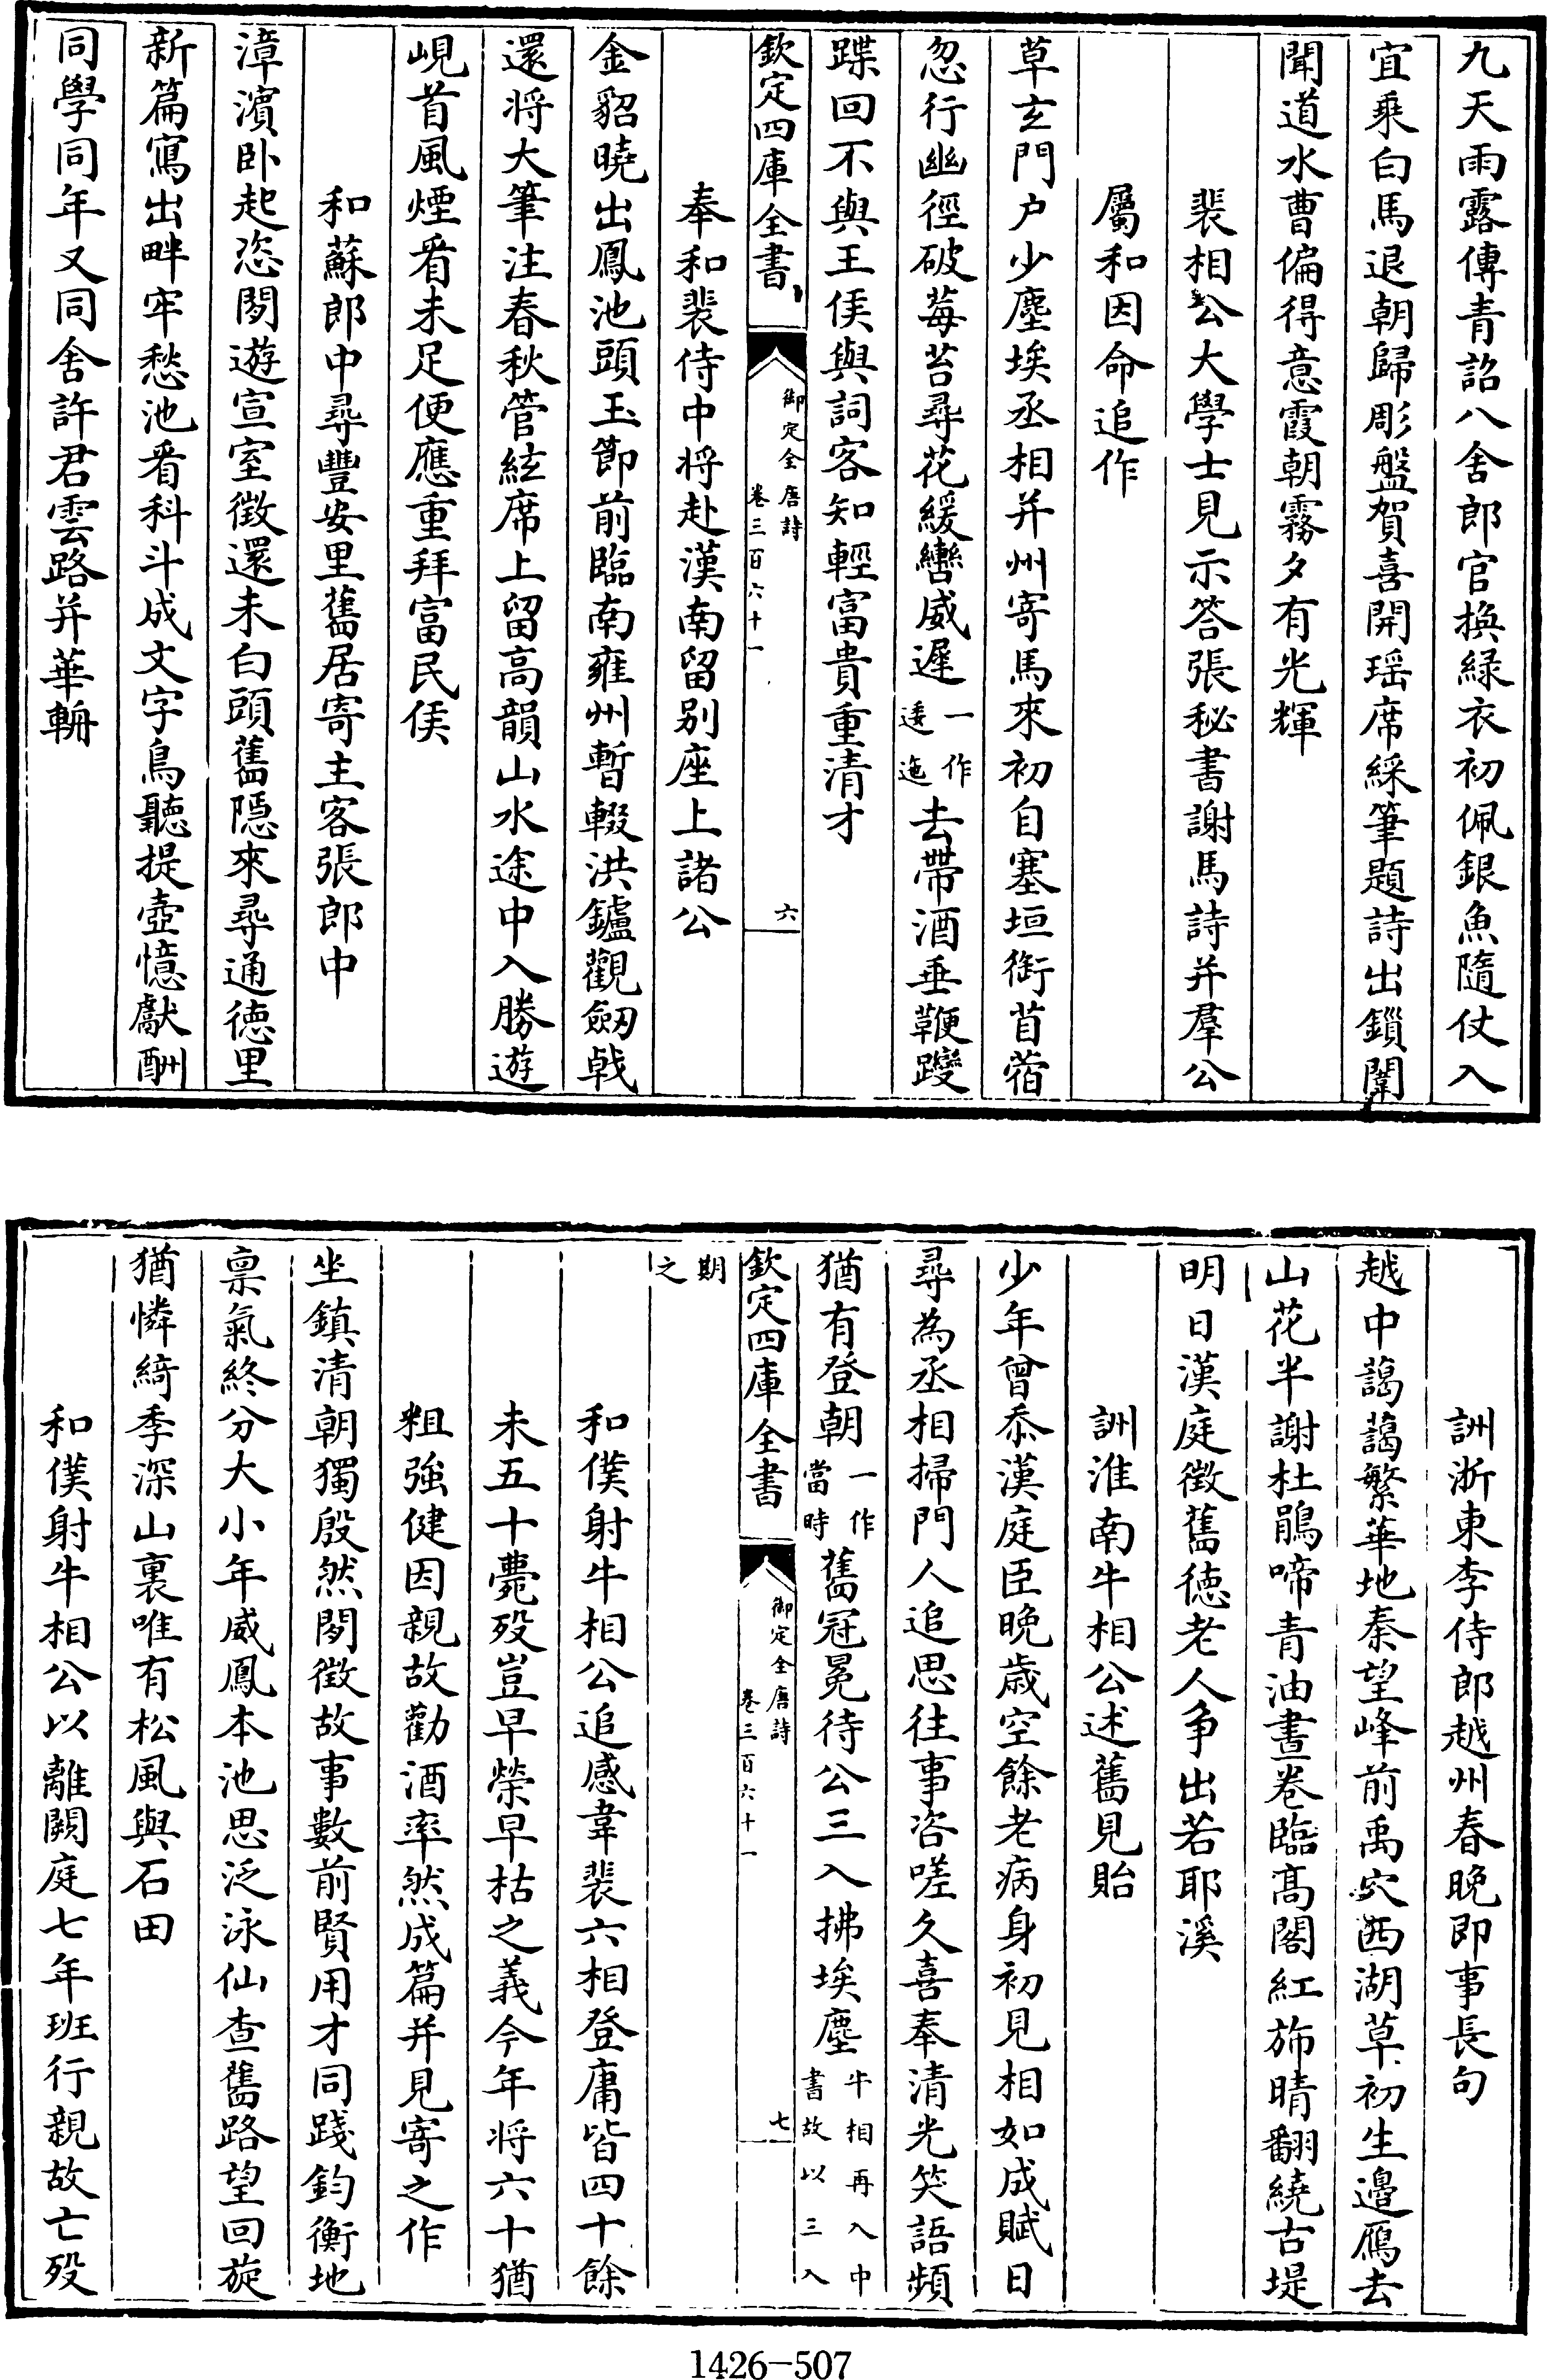 九天雨露傳青詔八舍郎官換緑衣初佩銀魚隨仗入
宜乘白馬退朝歸彫盤賀喜開瑶席綵筆題詩出鎻闈
聞道水曹偏得意霞朝霧夕有光輝
裴相公大學士見示答張秘書謝馬詩并羣公
屬和因命追作
草玄門户少塵埃丞相并州寄馬來初自塞垣銜苜蓿
忽行幽徑破莓苔尋花緩轡威遲一作逶迤去帶酒垂鞭躞
蹀回不與王侯與詞客知輕富貴重清才
欽定四庫全書
御定全唐詩
卷三百六十一
六
奉和裴侍中将赴漢南留别座上諸公
金貂曉出鳳池頭玉節前臨南雍州暫輟洪鑪觀劒戟
還将大筆注春秋管絃席上留高韻山水途中入勝遊
峴首風煙看未足便應重拜富民侯
和蘇郎中尋豐安里舊居寄主客張郎中
漳濱卧起恣閑遊宣室徴還未白頭舊隱來尋通徳里
新篇寫出畔牢愁池看科斗成文字鳥聽提壺憶獻酬
同學同年又同舍許君雲路并華輈
詶浙東李侍郎越州春晚即事長句
越中藹藹繁華地秦望峰前禹穴西湖草初生邊鴈去
山花半謝杜鵑啼青油晝卷臨高閣紅斾晴翻繞古堤
明日漢庭徴舊徳老人争出若耶溪
詶淮南牛相公述舊見貽
少年曾忝漢庭臣晚歳空餘老病身初見相如成賦日
尋為丞相掃門人追思往事咨嗟久喜奉清光笑語頻
猶有登朝一作當時舊冠冕待公三入拂埃塵牛相再入中書故以三入
欽定四庫全書
御定全唐詩
卷三百六十一
七
期之
和僕射牛相公追感韋裴六相登庸皆四十餘
未五十薨歿豈早榮早枯之義今年将六十猶
粗強健因親故勸酒率然成篇并見寄之作
坐鎮清朝獨殷然閑徴故事數前賢用才同踐鈞衡地
禀氣終分大小年威鳳本池思泛泳仙查舊路望回旋
猶憐綺季深山裏唯有松風與石田
和僕射牛相公以離闕庭七年班行親故亡歿
1426-507